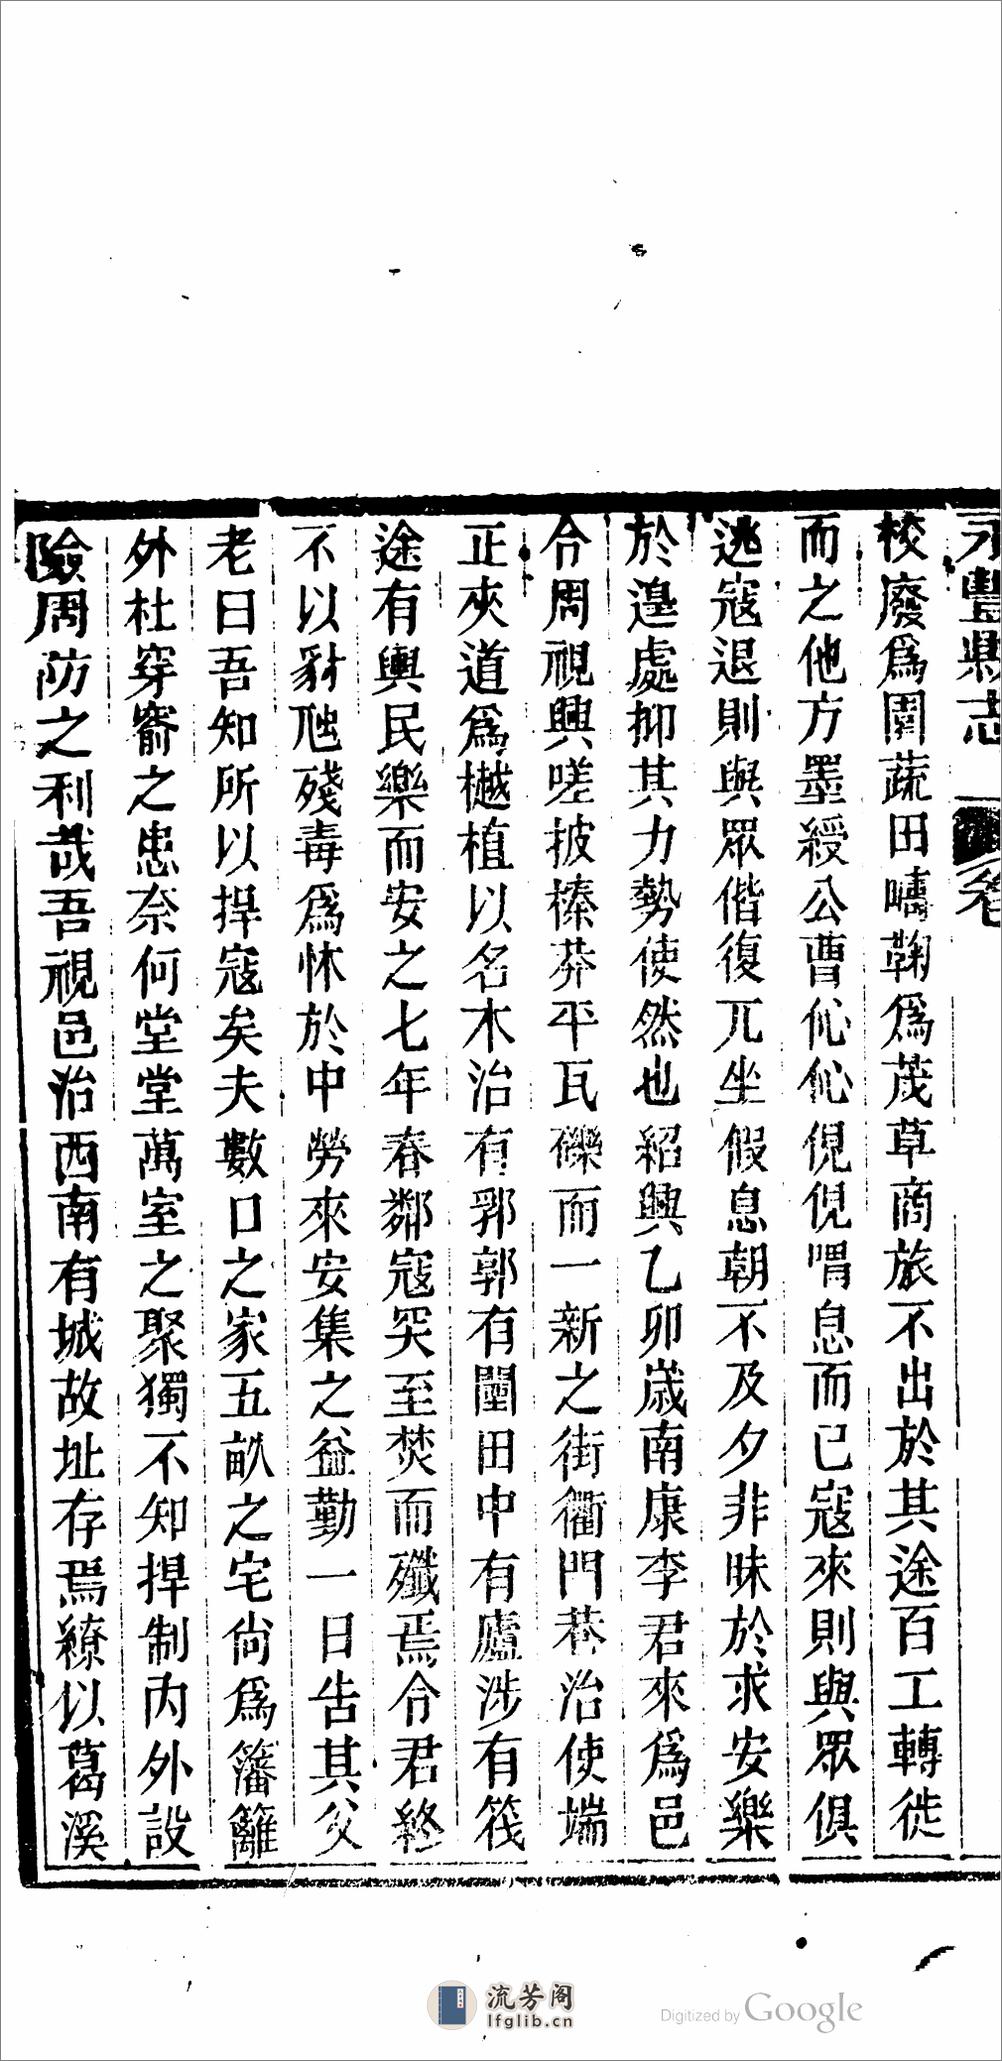 永豐縣志
卷
校廢爲園蔬田疇鞠爲茂草商旅不出於其途百工轉徙
而之他方墨綬公曹伈伈俔俔喟息而已寇來則與眾俱
逃寇退則與眾偕復兀坐假息朝不及夕非昧於求安樂
於遑處抑其力勢使然也紹興乙卯歲南康李君來爲邑
令周視興嗟披榛莽平瓦礫而一新之街衢門巷治使端
正夾道爲樾植以名木治有郛郭有闉田中有廬涉有筏
途有輿民樂而安之七年春鄰寇突至焚而殲焉令君終
不以豺虺殘毒爲怵於中勞來安集之益勤一日告其父
老曰吾知所以捍寇矣夫數口之家五畝之宅尙爲籓籬
外杜穿窬之患奈何堂堂萬室之聚獨不知捍制內外設
險周防之利哉吾視邑治西南有城故址存焉繚以葛溪
流芳阁
lfglib.cn
Digitized by Google